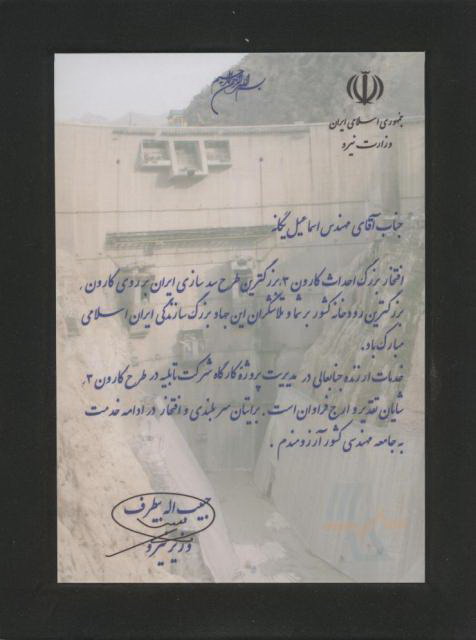 بسم الله الرحمن الرحیم
جمهوری اسلامی ایران
وزارت نیرو
جناب آقای مهندس اسماعیل یگانه
افتخار بزرگ احداث کارون ۳، بزرگترین طرح سد سازی ایران بر روی کارون،
بزرگترین رودخانه کشور بر شما و تلاشگران این جهاد بزرگ سازندگی ایران اسلامی
مبارک باد.
خدمات ارزنده جنابعالی در مدیریت پروژه کارگاه شرکت تابلیه در طرح کارون ۳،
شایان تقدیر و ارج فراوان است. برایتان سربلندی و افتخار در ادامه خدمت
به جامعه مهندسی کشور آرزومندم.
حبیب اله بیطرف
وزیر نیرو